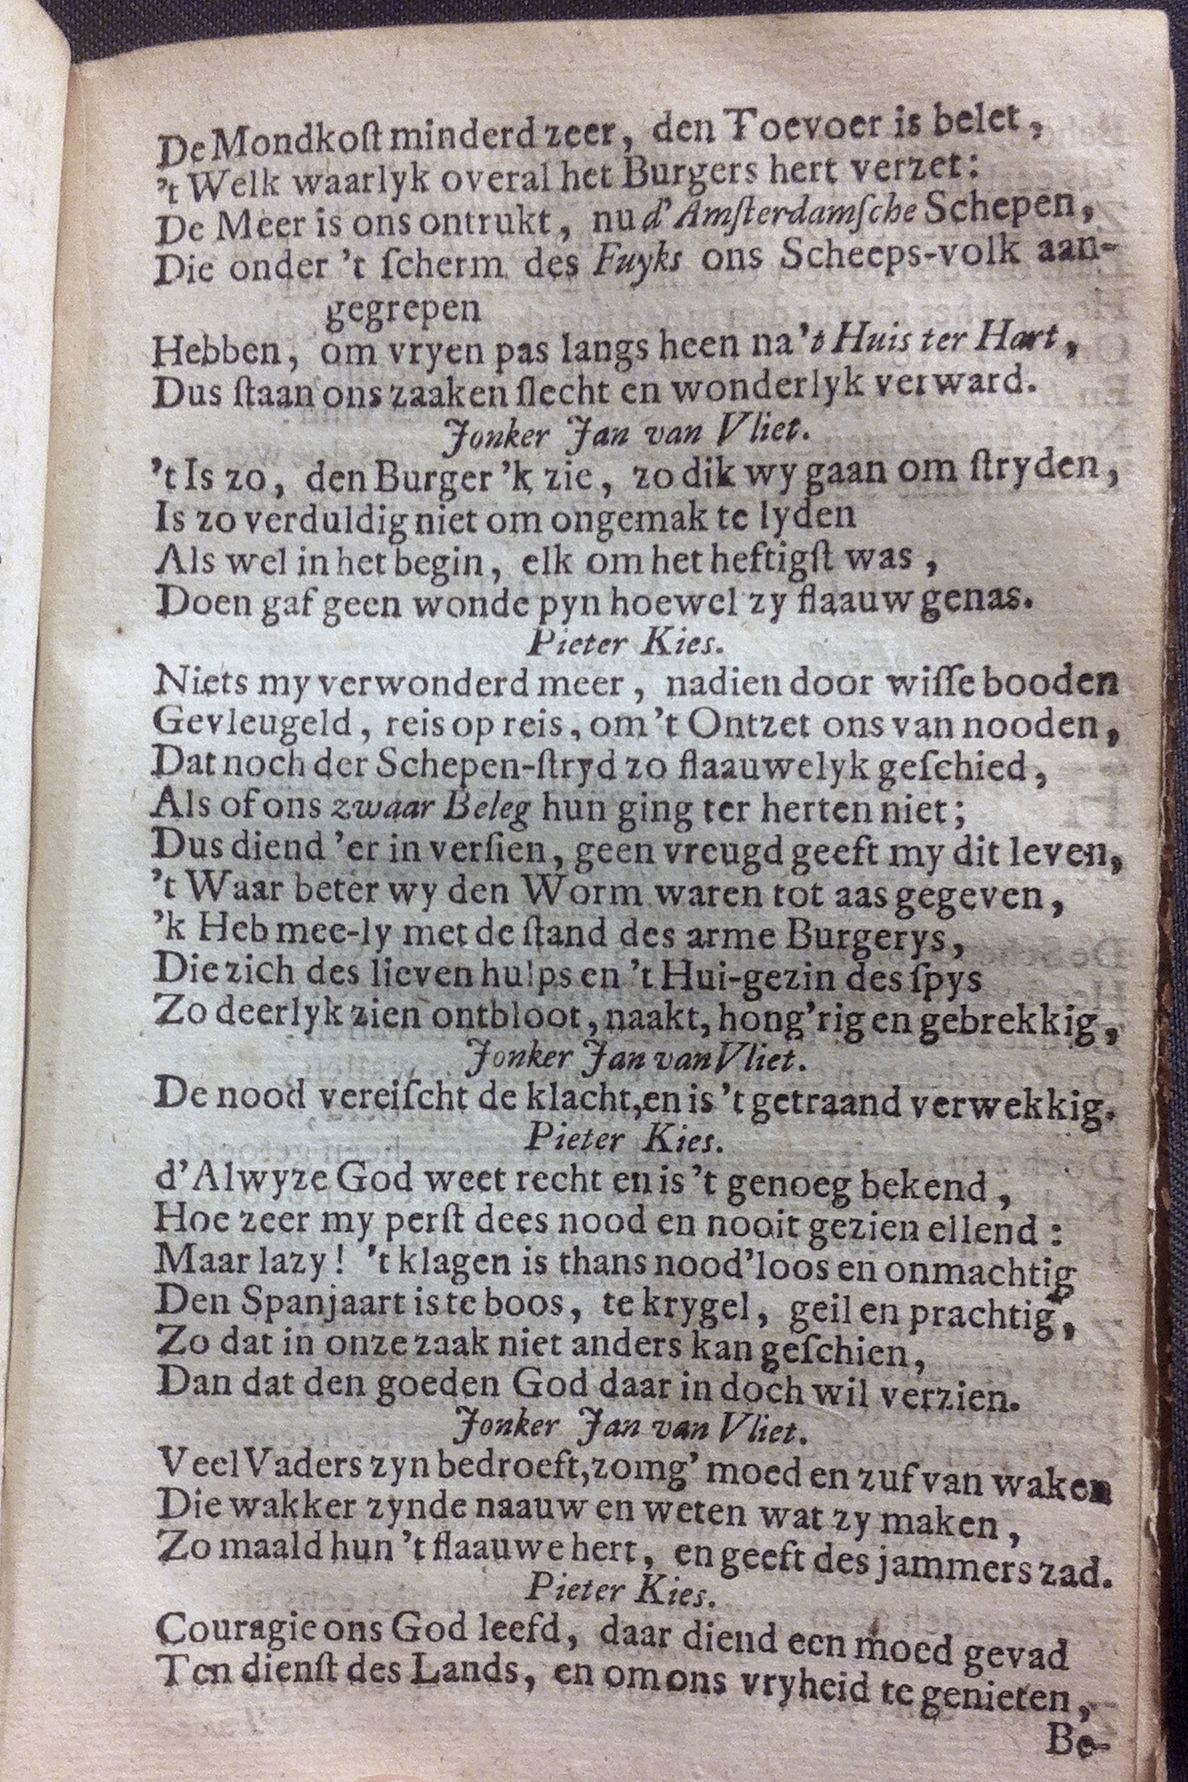 De Mondkoſt minderd zeer, den Toevoer is belet,
't Welk waarlyk overal het Burgers hert verzet:
De Meer is ons ontrukt, nu d'Amſterdamſche Schepen,
Die onder 't ſcherm des Fuyks ons Scheeps-volk aan-
gegrepen
Hebben, om vryen pas langs heen na 't Huis ter Hart,
Dus ſtaan ons zaaken ſlecht en wonderlyk verward.
Jonker Jan van Vliet.
't Is zo, den Burger 'k zie, zo dik wy gaan om ſtryden,
Is zo verduldig niet om ongemak te lyden
Als wel in het begin, elk om het heftigſt was,
Doen gaf geen wonde pyn hoewel zy flaauw genas.
Pieter Kies.
Niets my verwonderd meer, nadien door wiſſe booden
Gevleugeld, reis op reis, om 't Ontzet ons van nooden,
Dat noch der Schepen-ſtryd zo flaauwelyk geſchied,
Als of ons zwaar Beleg hun ging ter herten niet;
Dus diend 'er in verſien, geen vreugd geeft my dit leven,
't Waar beter wy den Worm waren tot aas gegeven,
'k Heb mee-ly met de ſtand des arme Burgerys,
Die zich des lieven hulps en 't Hui-gezin des ſpys
Zo deerlyk zien ontbloot, naakt, hong'rig en gebrekkig,
Jonker Jan van Vliet.
De nood vereiſcht de klacht, en is 't getraand verwekkig.
Pieter Kies.
d'Alwyze God weet recht en is 't genoeg bekend,
Hoe zeer my perſt dees nood en nooit gezien ellend:
Maar lazy! 't klagen is thans nood'loos en onmachtig
Den Spanjaart is te boos, te krygel, geil en prachtig,
Zo dat in onze zaak niet anders kan geſchien,
Dan dat den goeden God daar in doch wil verzien.
Jonker Jan van Vliet.
Veel Vaders zyn bedroeft, zomg' moed en zuf van waken
Die wakker zynde naauw en weten wat zy maken,
Zo maald hun 't flaauwe hert, en geeft des jammers zad.
Pieter Kies.
Couragie ons God leefd, daar diend een moed gevad
Ten dienſt des Lands, en om ons vryheid te genieten,
Be-